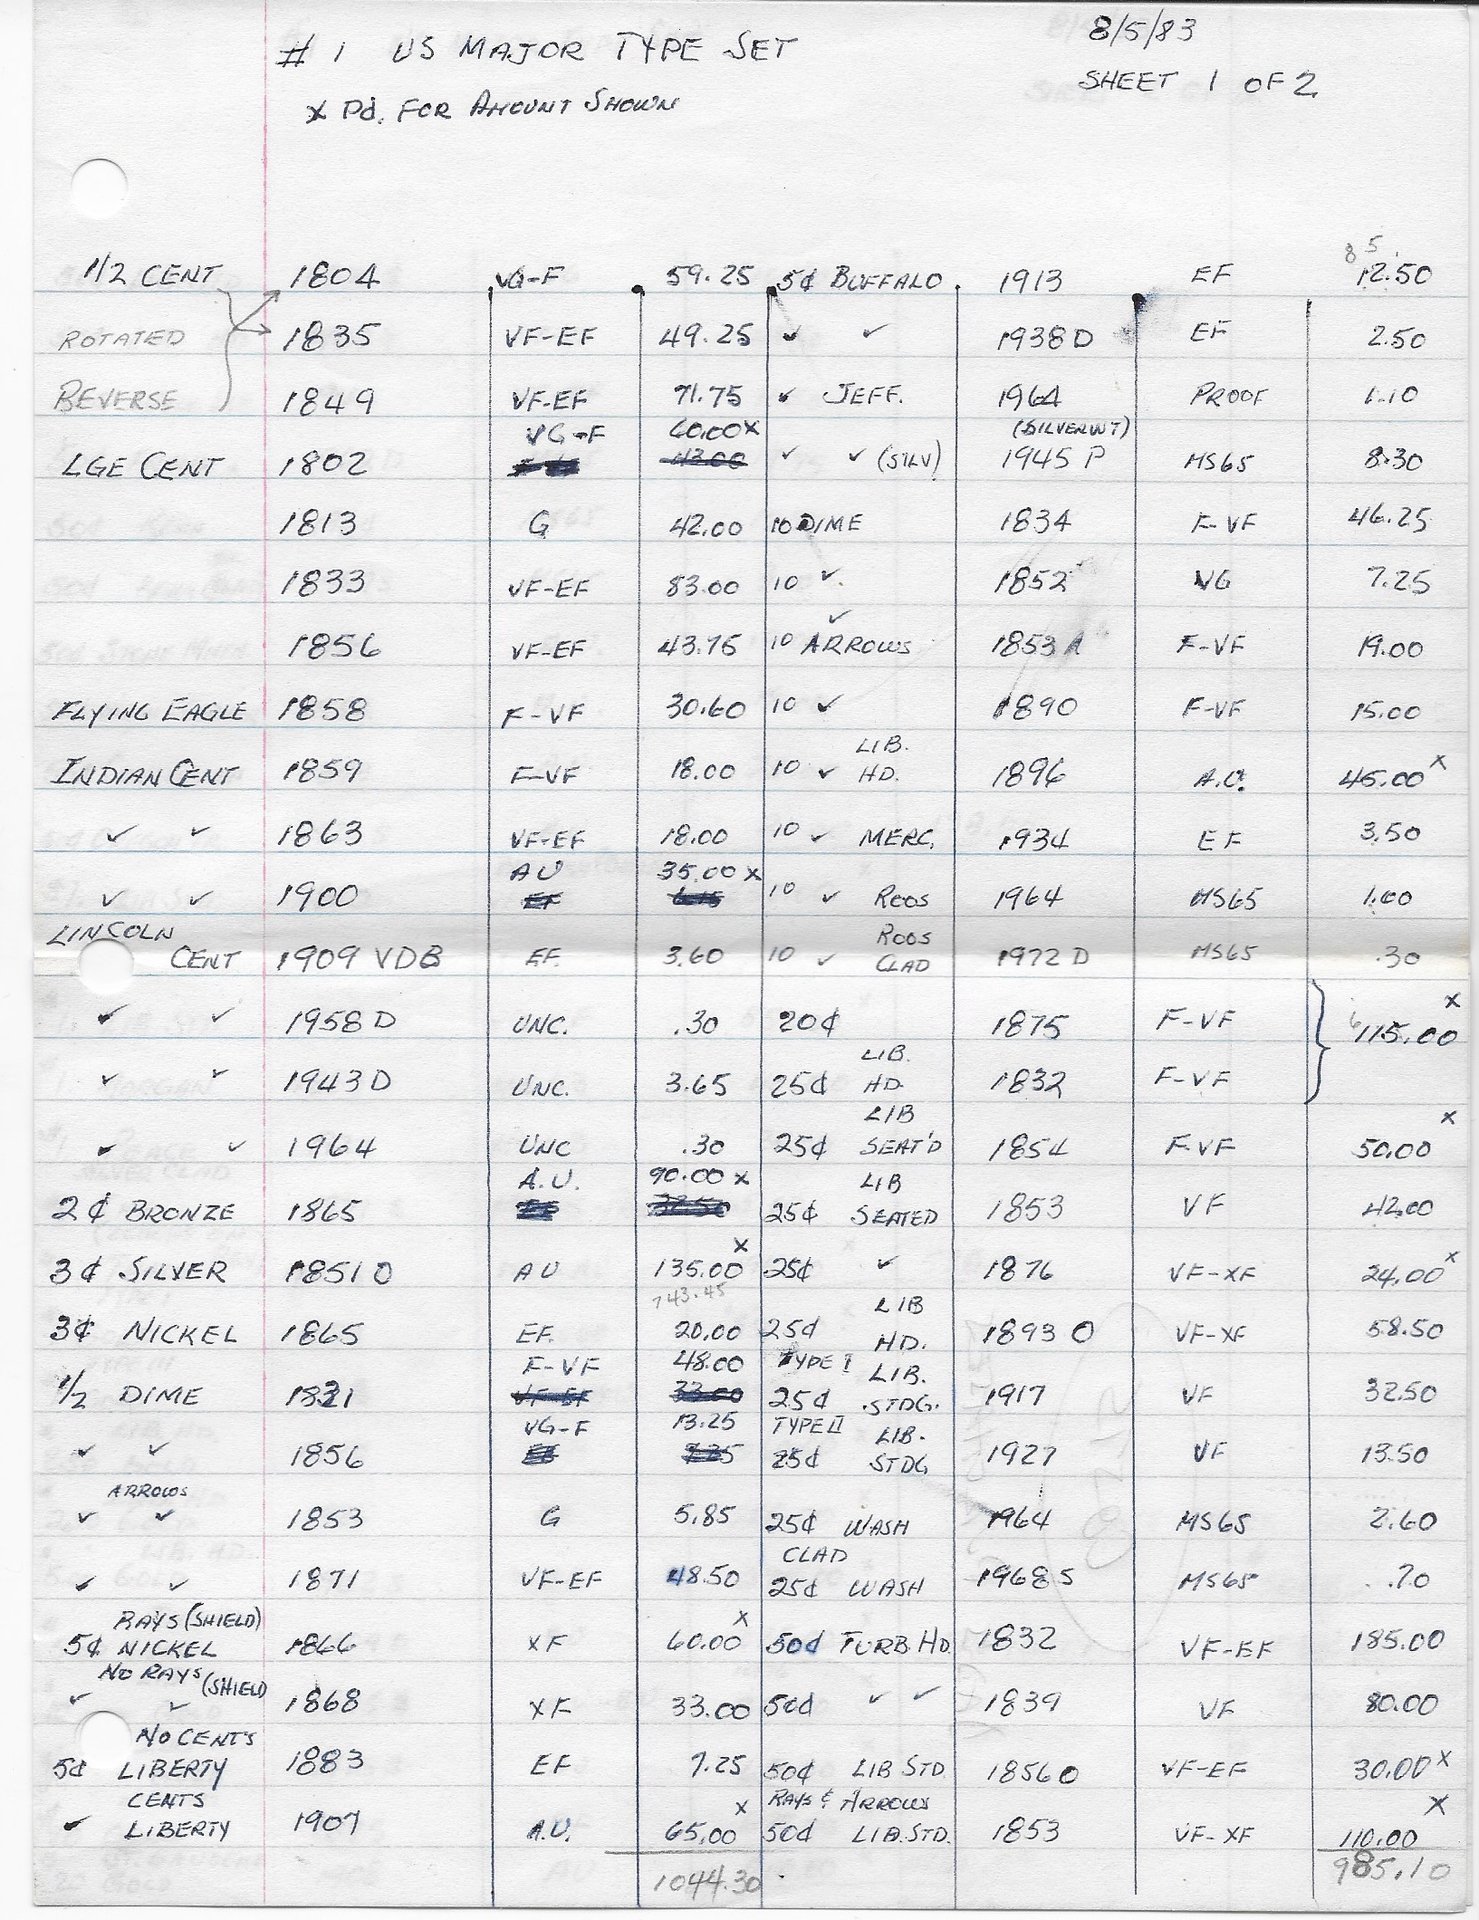 # 1 US MAJOR TYPE SET 8/5/83
SHEET 1 OF 2
x Pd. FOR AMOUNT SHOWN
8 5
1/2 CENT 1804 VG-F 59.25 5¢ BUFFALO 1913 EF 12.50
ROTATED 1835 VF-EF 49.25 ✓ ✓ 1938 D EF 2.50
REVERSE 1849 VF-EF 71.75 ✓ JEFF. 1964 PROOF 1.10
VG-F 60.00 x (SILVER WT)
LGE CENT 1802 43.00 ✓ ✓ (SILV) 1945 P MS65 8.30
1813 G 42.00 10 DIME 1834 F-VF 46.25
1833 VF-EF 83.00 10 ✓ 1852 VG 7.25
✓
1856 VF-EF 43.75 10 ARROWS 1853 A F-VF 19.00
FLYING EAGLE 1858 F-VF 30.60 10 ✓ 1890 F-VF 15.00
LIB.
INDIAN CENT 1859 F-VF 18.00 10 ✓ HD. 1896 A.U. 45.00 x
✓ ✓ 1863 VF-EF 18.00 10 ✓ MERC. 1934 EF 3.50
AU 35.00 x
✓ ✓ 1900 EF 10 ✓ ROOS 1964 MS65 1.00
LINCOLN ROOS
CENT 1909 VDB EF 3.60 10 ✓ CLAD 1972 D MS65 .30
x
✓ ✓ 1958 D UNC. .30 20¢ 1875 F-VF 115.00
LIB.
✓ ✓ 1943 D UNC. 3.65 25¢ HD. 1832 F-VF
LIB x
✓ ✓ 1964 UNC .30 25¢ SEAT'D 1854 F-VF 50.00
A.U. 90.00 x LIB
2¢ BRONZE 1865 25¢ SEATED 1853 VF 42.00
x
3¢ SILVER 1851 O AU 135.00 25¢ ✓ 1876 VF-XF 24.00 x
743.45 LIB
3¢ NICKEL 1865 EF. 20.00 25¢ HD. 1893 O VF-XF 58.50
F-VF 48.00 TYPE I LIB.
1/2 DIME 1831 VF-EF 33.00 25¢ STDG. 1917 VF 32.50
VG-F 13.25 TYPE II LIB.
✓ ✓ 1856 25¢ STDG 1927 VF 13.50
ARROWS
✓ ✓ 1853 G 5.85 25¢ WASH 1964 MS65 2.60
CLAD
✓ ✓ 1871 VF-EF 48.50 25¢ WASH 1968 S MS65 .70
RAYS (SHIELD) x
5¢ NICKEL 1866 XF 60.00 50¢ TURB HD 1832 VF-EF 185.00
NO RAYS (SHIELD)
✓ ✓ 1868 XF 33.00 50¢ ✓ ✓ 1839 VF 80.00
NO CENTS
5¢ LIBERTY 1883 EF 7.25 50¢ LIB STD 1856 O VF-EF 30.00 x
CENTS x RAYS & ARROWS x
✓ LIBERTY 1907 A.U. 65.00 50¢ LIB. STD. 1853 VF-XF 110.00
1044.30 985.10